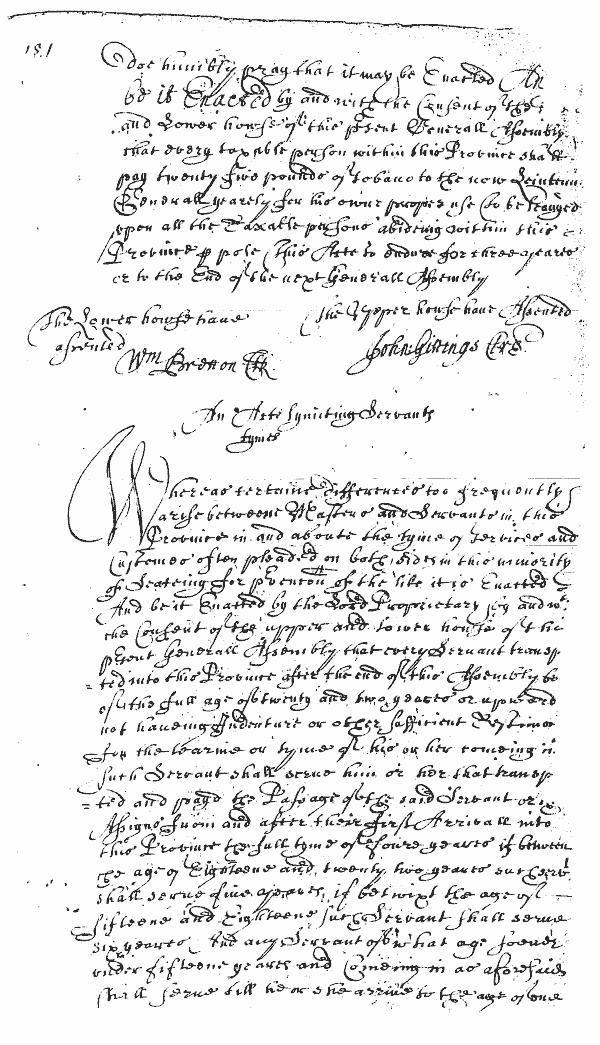 181
doe humbly pray that it may be Enacted And
be it Enacted by and with the Consent of the
and Lower howse of this pſent Generall Aſsembly
that every taxable person within this Province shall
pay twenty five pounds of tobaco to the now Leiuten
Generall yearely for his owne proper use to be leavyed
upon all the Taxable persons abideing within this
Province p pole this Acte to endure for three yeares
or to the End of the next Generall Aſsembly
The Lower howse have
aſsented
Wm Bretton Clk
The Upper howse have Aſsented
John Gittings Clre
An Acte lymiting Servants
tymes
Whereas certaine differences too frequently
ariſe betweene Masters and Servants in this
Province in and aboute the tyme of services and
Customes often pleaded on both sides in this minority
of Seateing for pvencon of the like it is Enacted
And be it Enacted by the Lord Proprietary by and wt
the Consent of the upper and lower howse of this
pſent Generall Aſsembly that every Servant transp
ted into this Province after the end of this Aſsembly be
of the full age of twenty and two yeares or upward
not haveing Indenture or other sufficient Testimo
for the tearme or tyme of his or her comeing in
such Servant shall serve him or her that transp
ted and payd the Paſsage of the said Servant or
Aſsignes from and after their first Arrivall into
this Province the full tyme of fowre yeares if between
the age of Eighteene and twenty two yeares such serv
shall serve five yeares, if betwixt the age of
fifteene and Eighteene such Servant shall serve
six yeares And any Servant of what age soever
under fifteene yeares and Comeing in as aforesaid
shall serve till he or she arrive to the age of one